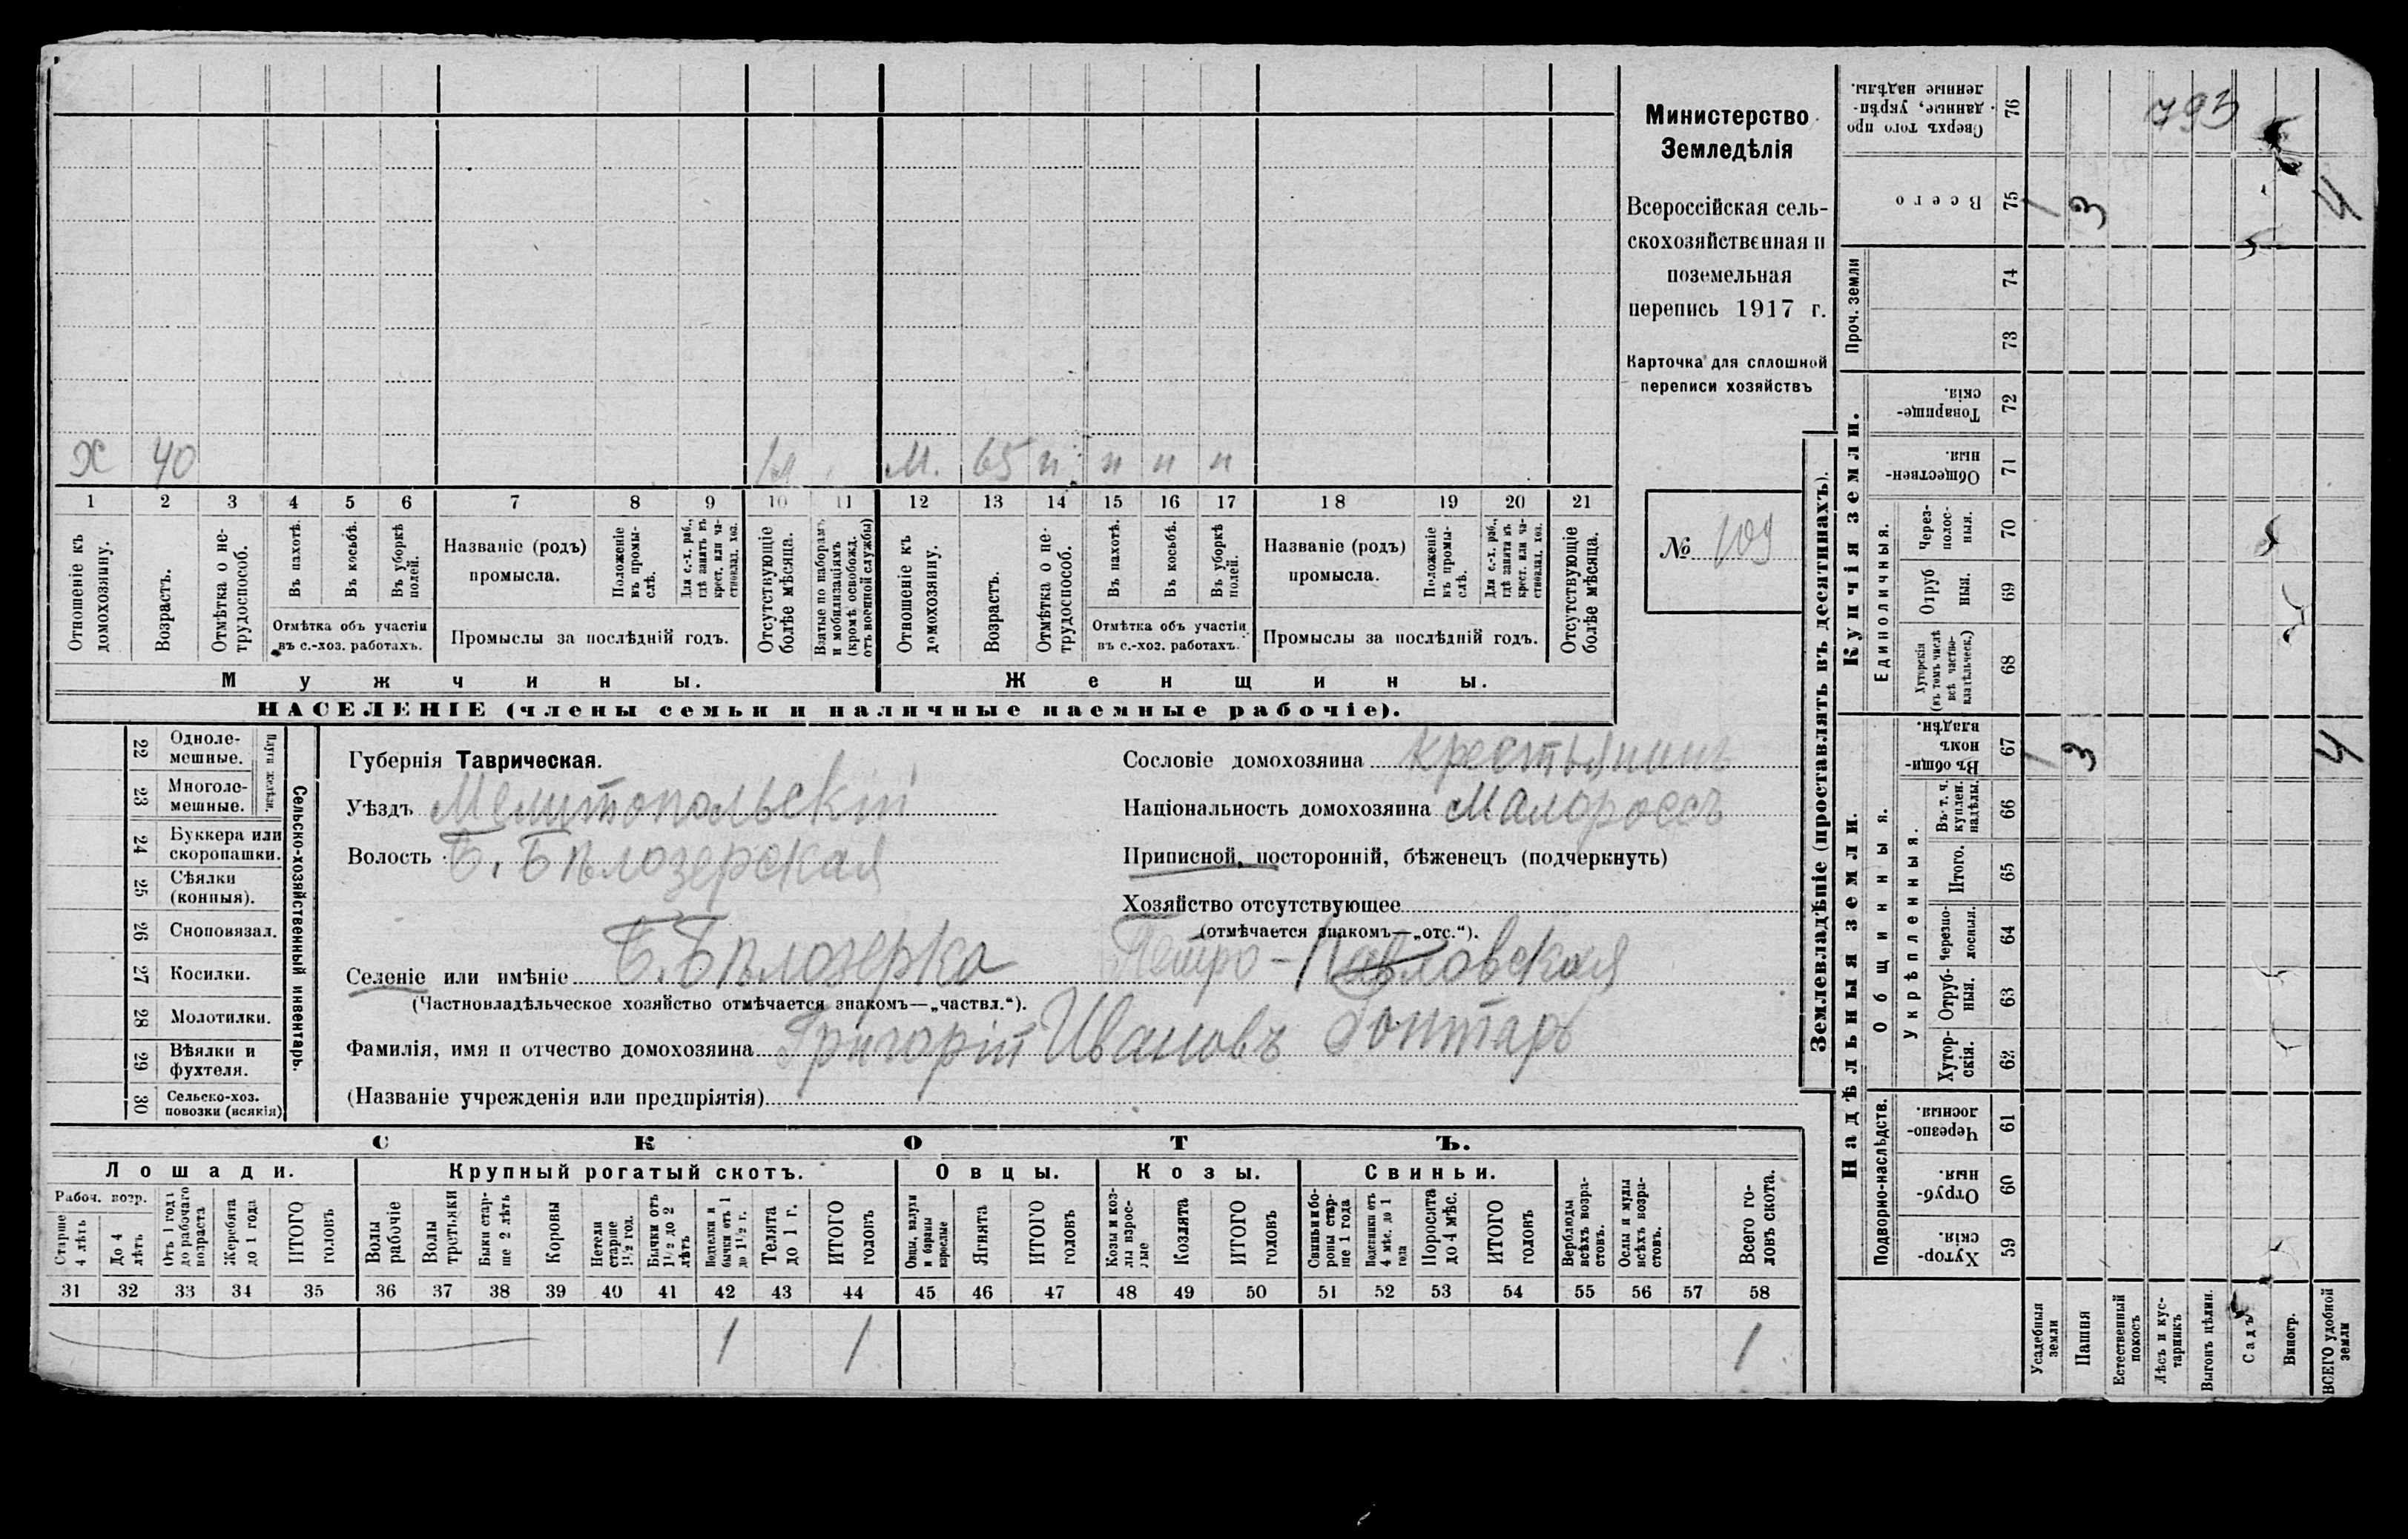 Министерство
Земледѣлія
Всероссійская сель-
скохозяйственная и
поземельная
перепись 1917 г.
Карточка для сплошной
переписи хозяйствъ
№ 109
793
Х 40 М. 65 п п п п
1 2 3 4 5 6 7 8 9 10 11 12 13 14 15 16 17 18 19 20 21
Отношеніе къ домохозяину.
Возрастъ.
Отмѣтка о не-трудоспособ.
Въ пахотѣ.
Въ косьбѣ.
Въ уборкѣ полей.
Отмѣтка объ участіи
въ с.-хоз. работахъ.
Названіе (родъ)
промысла.
Положеніе въ промы-слѣ.
Для с.-х. раб., гдѣ занятъ въ крест. или ча-стновлад. хоз.
Промыслы за послѣдній годъ.
Отсутствующіе болѣе мѣсяца.
Взятые по наборамъ и мобилизаціямъ (кромѣ освобожд. отъ военной службы)
Отношеніе къ домохозяину.
Возрастъ.
Отмѣтка о не-трудоспособ.
Въ пахотѣ.
Въ косьбѣ.
Въ уборкѣ полей.
Отмѣтка объ участіи
въ с.-хоз. работахъ.
Названіе (родъ)
промысла.
Положеніе въ промы-слѣ.
Для с.-х. раб., гдѣ заняты въ крест. или ча-стновлад. хоз.
Промыслы за послѣдній годъ.
Отсутствующіе болѣе мѣсяца.
Мужчины. Женщины.
НАСЕЛЕНІЕ (члены семьи и наличные наемные рабочіе).
Сельско-хозяйственный инвентарь.
Плуги желѣзн.
22 Одноле-мешные.
23 Многоле-мешные.
24 Буккера или скоропашки.
25 Сѣялки (конныя).
26 Сноповязал.
27 Косилки.
28 Молотилки.
29 Вѣялки и фухтеля.
30 Сельско-хоз. повозки (всякія)
Губернія Таврическая.
Уѣздъ Мелитопольскій
Волость Б. Бѣлозерская
Сословіе домохозяина крестьянинъ
Національность домохозяина Малороссъ
Приписной, посторонній, бѣженецъ (подчеркнуть)
Хозяйство отсутствующее
(отмѣчается знакомъ—„отс.“).
Селеніе или имѣніе Б. Бѣлозерка Петро-Павловская
(Частновладѣльческое хозяйство отмѣчается знакомъ—„частвл.“).
Фамилія, имя и отчество домохозяина Григорій Ивановъ Гонтарь
(Названіе учрежденія или предпріятія)
СКОТЪ.
Лошади. Крупный рогатый скотъ. Овцы. Козы. Свиньи.
Рабоч. возр.
Старше 4 лѣтъ
До 4 лѣтъ
Отъ 1 года до рабочаго возраста
Жеребята до 1 года
ИТОГО головъ
Волы рабочіе
Волы третьяки
Быки стар-ше 2 лѣтъ
Коровы
Нетели старше 1½ год.
Бычки отъ 1½ до 2 лѣтъ
Подтелки и бычки отъ 1 до 1½ г.
Телята до 1 г.
ИТОГО головъ
Овцы, валухи и бараны взрослые
Ягнята
ИТОГО головъ
Козы и коз-лы взрос-лые
Козлята
ИТОГО головъ
Свиньи и бо-ровы стар-ше 1 года
Подсвинки отъ 4 мѣс. до 1 года
Поросята до 4 мѣс.
ИТОГО головъ
Верблюды всѣхъ возра-стовъ.
Ослы и мулы всѣхъ возра-стовъ.
Всего го-ловъ скота.
31 32 33 34 35 36 37 38 39 40 41 42 43 44 45 46 47 48 49 50 51 52 53 54 55 56 57 58
1 1 1
Землевладѣніе (проставлять въ десятинахъ).
Сверхъ того про-данные, укрѣп-ленные надѣлы. 76
Всего 75 1 3 4
Проч. земли 74
73
Купчія земли.
Товарище-скія. 72
Обществен-ныя. 71
Единоличныя.
Через-полос-ныя. 70
Отруб-ныя. 69
Хуторскія (въ томъ числѣ всѣ частно-владѣльческ.) 68
Надѣльныя земли.
Общинныя.
Въ общи-номъ владѣн. 67 1 3 4
Укрѣпленныя.
Въ т. ч. куплен. надѣлы. 66
Итого. 65
Черезпо-лосныя. 64
Отруб-ныя. 63
Хутор-скія. 62
Подворно-наслѣдств.
Черезпо-лосныя. 61
Отруб-ныя. 60
Хутор-скія. 59
Усадебныя земли
Пашня
Естественный покосъ
Лѣсъ и кус-тарникъ
Выгонъ цѣлин.
Садъ
Виногр.
ВСЕГО удобной земли